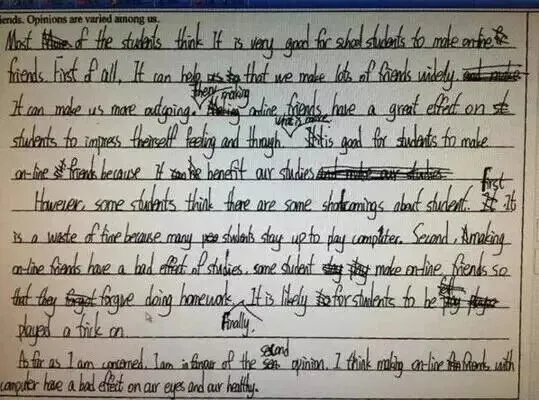 iends. Opinions are varied among us.
Most of the students think It is very good for school students to make on-line
friends. First of all, It can help us that we make lots of friends widely.
It can make us more outgoing. then making on-line friends have a great effect on
students to impress theirself feeling and through. what's more It is good for students to make
on-line friends because It can benefit our studies
However, some students think there are some shortcomings about student. first It
is a waste of time because many students stay up to play computer. Second, making
on-line friends have a bad effect of studies. some student make on-line friends so
that they forgive doing homework. It is likely for students to be
Finally.
played a trick on
As far as I am concerned. I am in favour of the second opinion. I think making on-line friends with
computer have a bad effect on our eyes and our healthy.